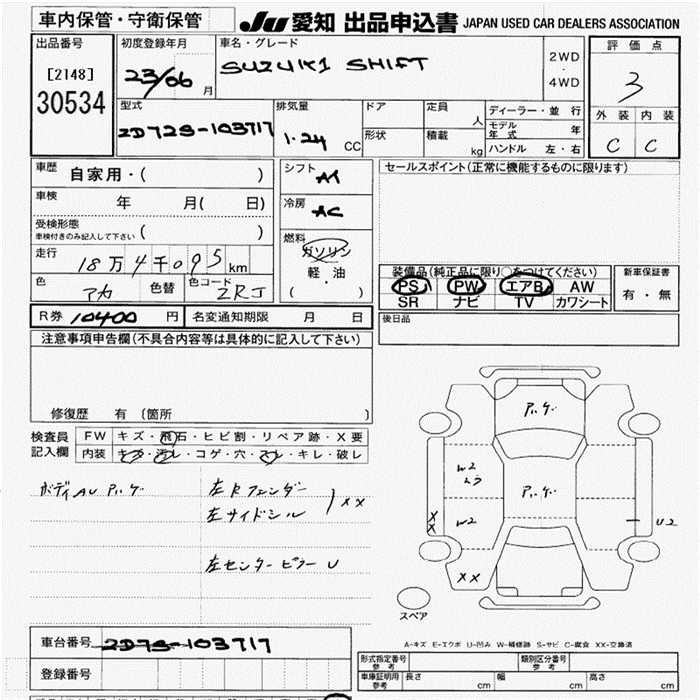 車内保管・守衛保管
JU 愛知 出品申込書 JAPAN USED CAR DEALERS ASSOCIATION
出品番号
[2148]
30534
初度登録年月
23/06 月
車名・グレード
SUZUKI SHIFT
2WD
・
4WD
評価点
3
外装 内装
C C
型式
ZD72S-103717
排気量
1.24 CC
ドア
定員 人
形状
積載 kg
ディーラー・並行
モデル年式 年
ハンドル 左・右
車歴
自家用・( )
車検
年 月( 日)
受検形態
車検付きのみ記入して下さい ( )
走行
18万4千095km
色
アカ
色替
色コード
ZRJ
シフト
AT
冷房
AC
燃料
ガソリン
軽・油
( )
セールスポイント(正常に機能するものに限ります)
装備品(純正品に限り○をつけてください)
PS PW エアB AW
SR ナビ TV カワシート
新車保証書
有・無
後日品
R券 10400 円
名変通知期限 月 日
注意事項申告欄(不具合内容等は具体的に記入して下さい)
修復歴 有 〔箇所 〕
検査員
記入欄
FW キズ・飛石・ヒビ割・リペア跡・X要
内装 キズ・汚レ・コゲ・穴・スレ・キレ・破レ
左Rフェンダー
左サイドシル
XX
左センターピラー U
W2
W2
XX
XX
U2
スペア
A-キズ E-エクボ U-凹み W-補修跡 S-サビ C-腐食 XX-交換済
車台番号
ZD7S-103717
登録番号
形式指定番号
参考
類別区分番号
参考
車庫証明用
参考
長さ cm
幅 cm
高さ cm